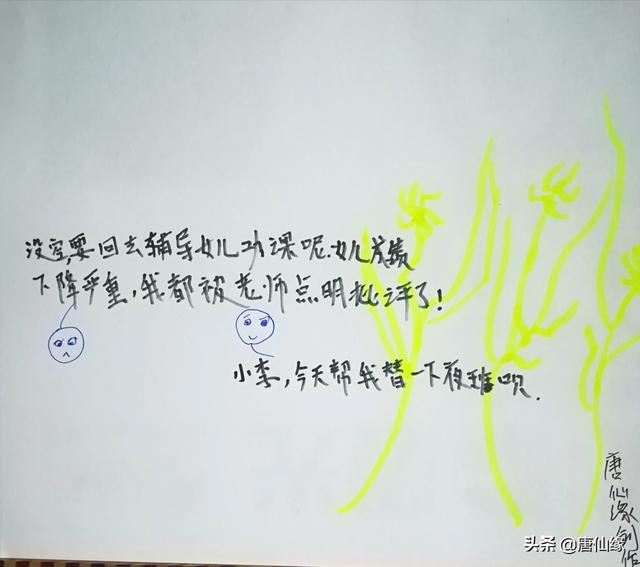 没空,要回去辅导女儿功课呢.女儿成绩
下降严重,我都被老师点明批评了!
小李,今天帮我替一下夜班呗.
唐仙缘创作
头条 @唐仙缘